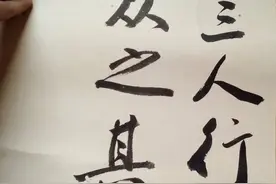 三人行
从之其